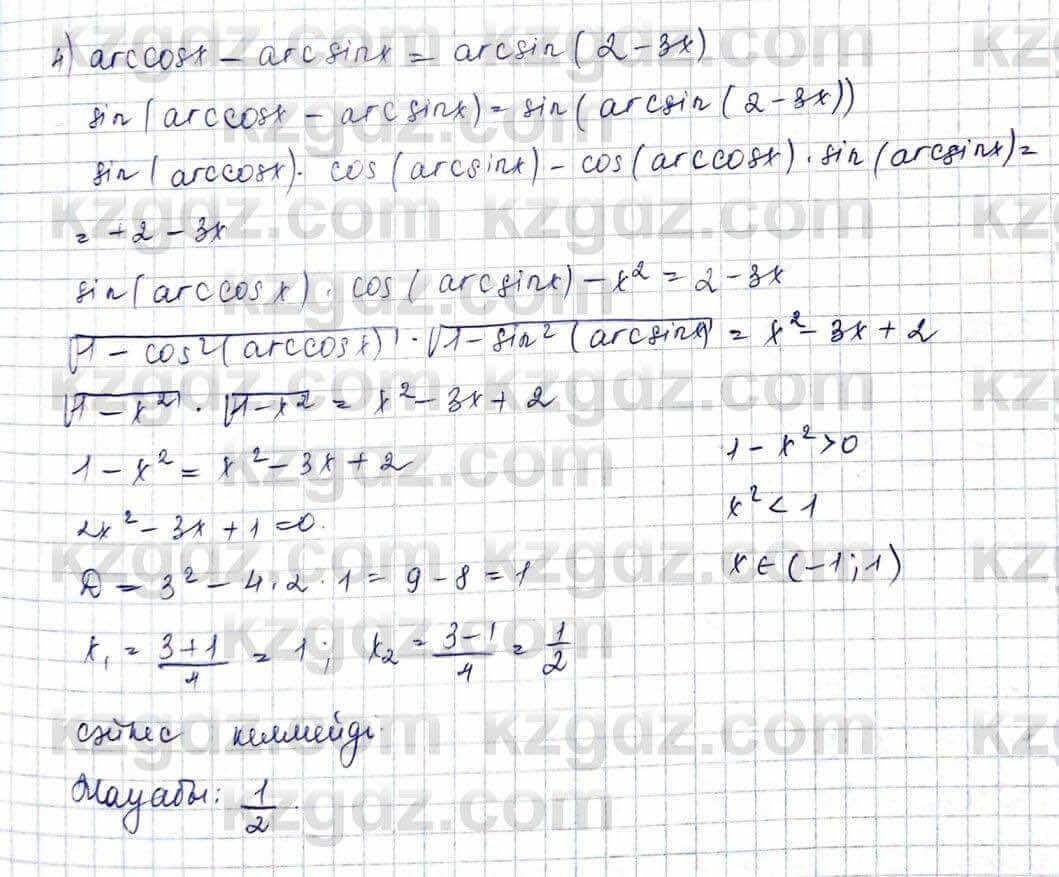 4) arccosx - arcsinx = arcsin(2-3x)
sin(arccosx - arcsinx) = sin(arcsin(2-3x))
sin(arccosx)·cos(arcsinx) - cos(arccosx)·sin(arcsinx) =
= +2-3x
sin(arccosx)·cos(arcsinx) - x² = 2-3x
√(1-cos²(arccosx))·√(1-sin²(arcsinx)) = x²-3x+2
√(1-x²)·√(1-x²) = x²-3x+2
1-x² = x²-3x+2
2x²-3x+1=0.
D = 3²-4·2·1 = 9-8 = 1
x₁ = (3+1)/4 = 1; x₂ = (3-1)/4 = 1/2
1-x²>0
x²<1
x∈(-1;1)
сәйкес келмейді.
Жауабы: 1/2.
kzgdz.com